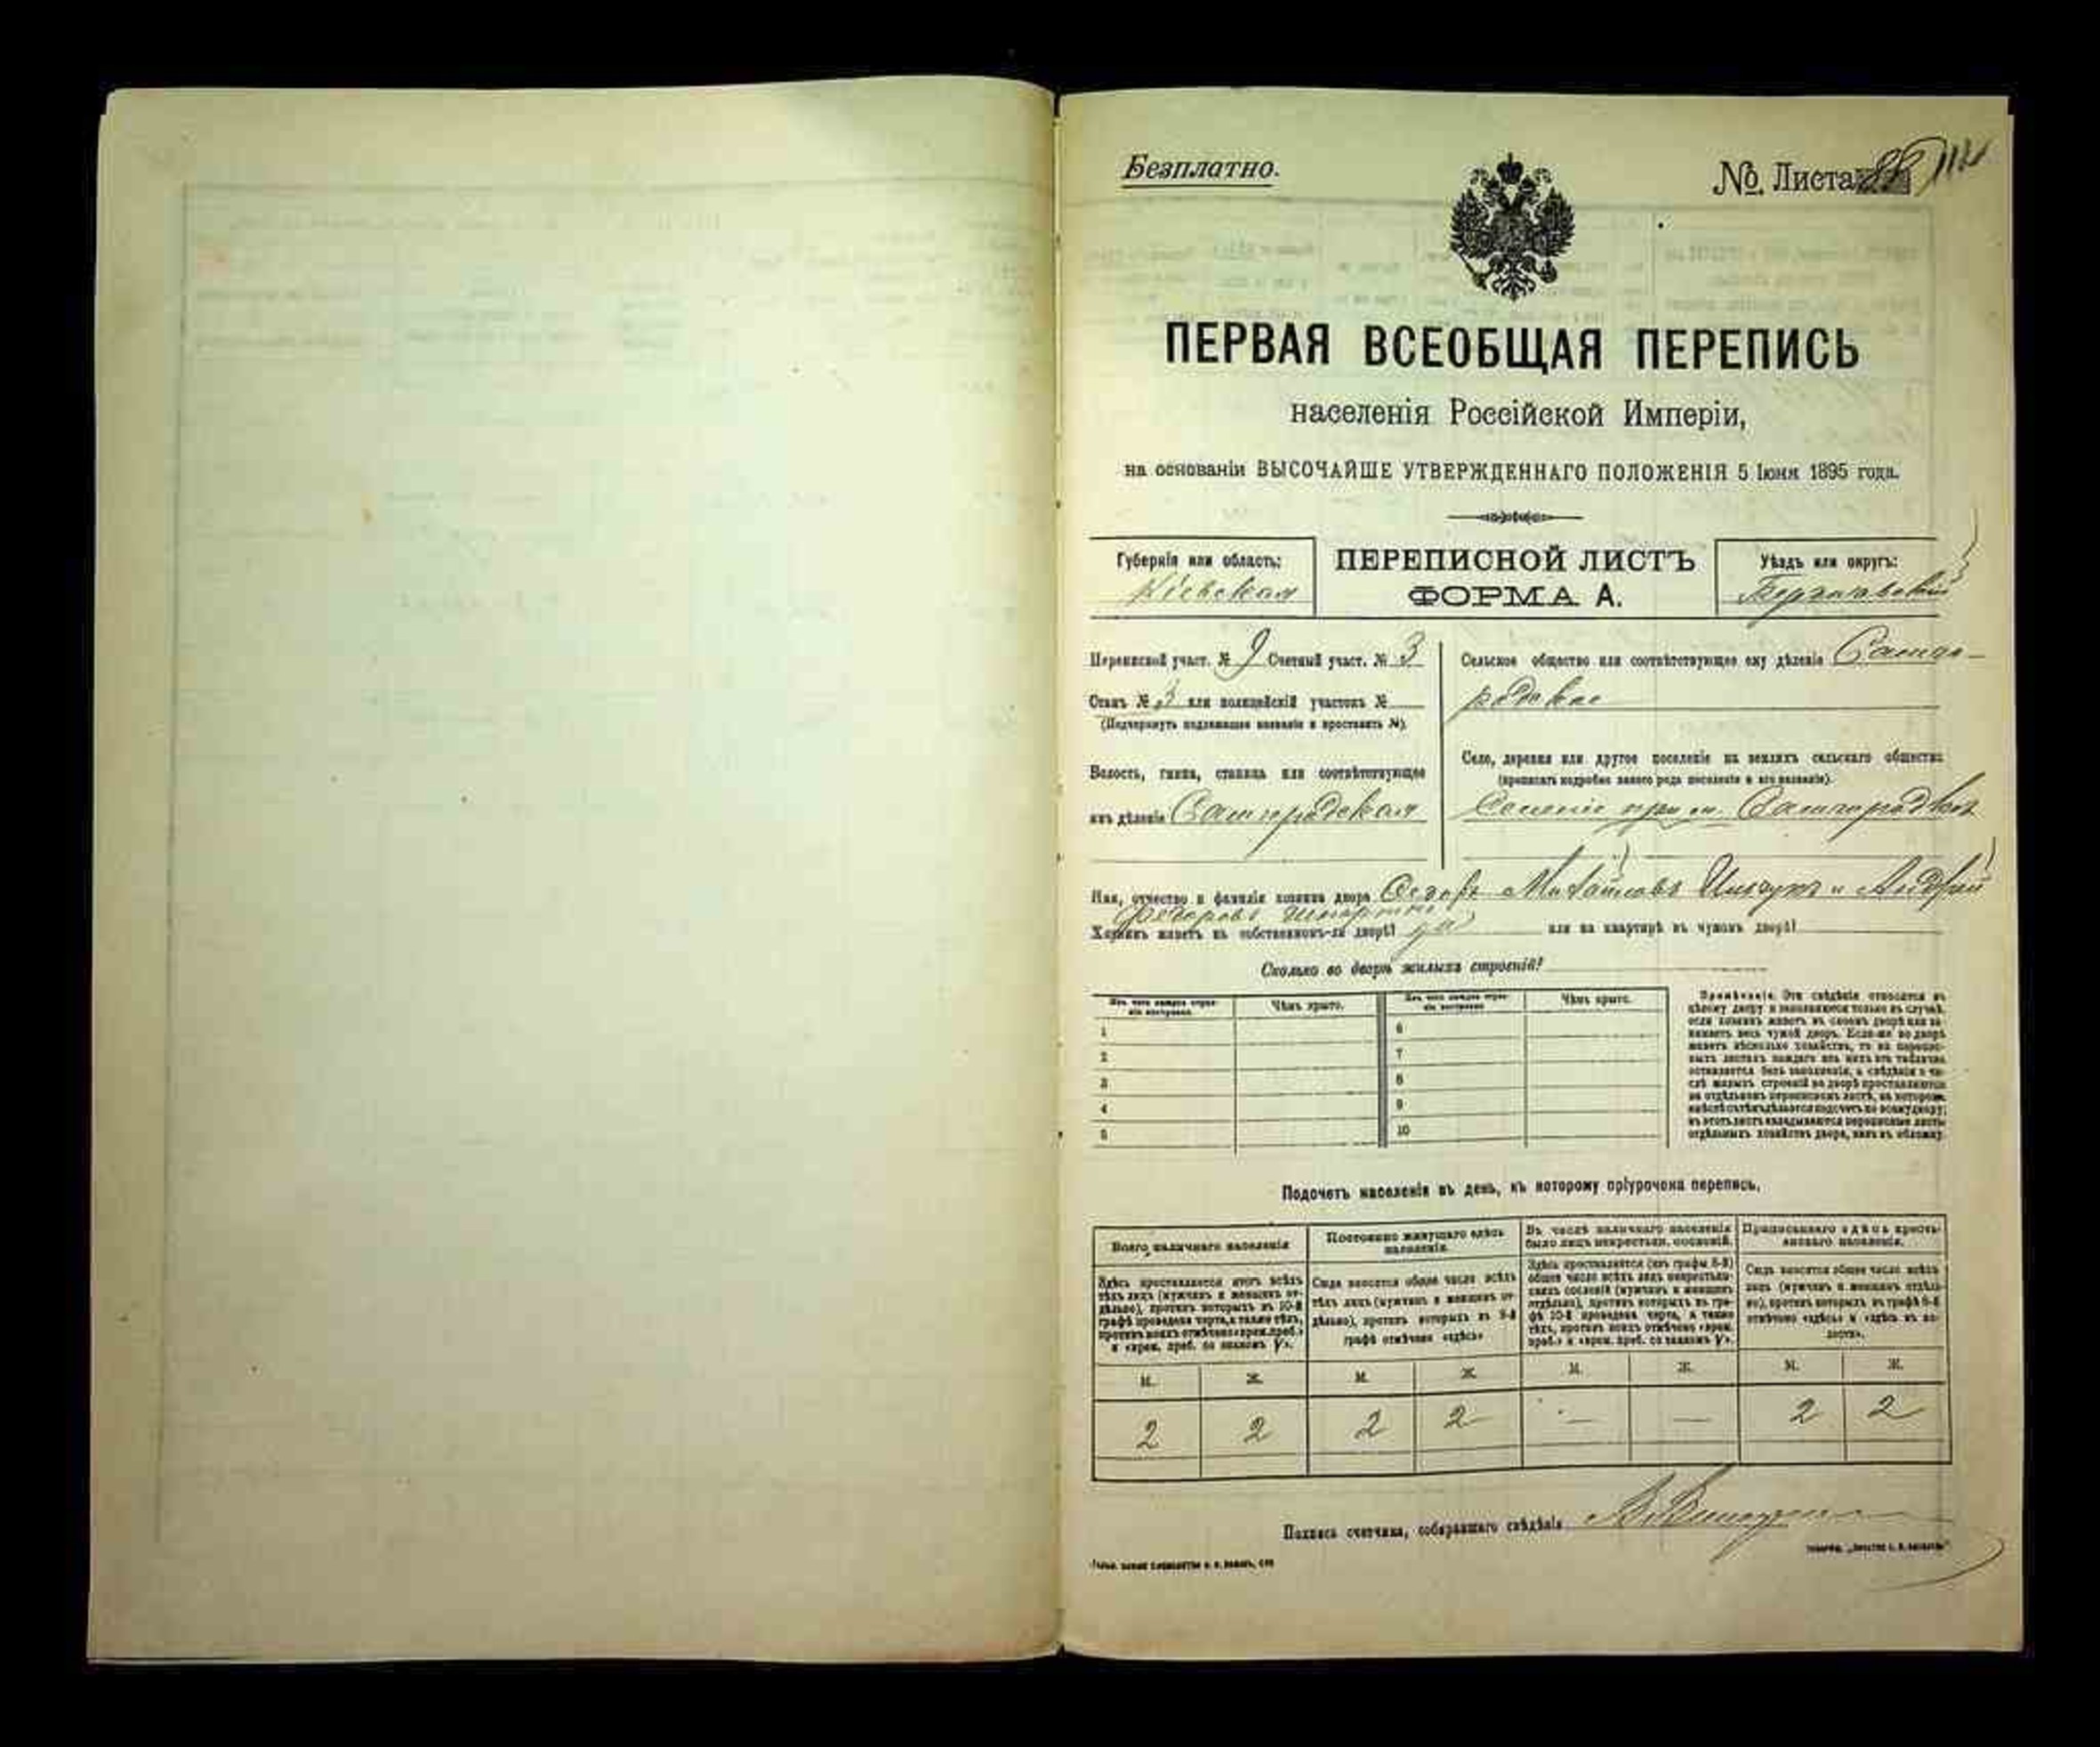 Безплатно.
№. Листа
ПЕРВАЯ ВСЕОБЩАЯ ПЕРЕПИСЬ
населенія Россійской Имперіи,
на основаніи ВЫСОЧАЙШЕ УТВЕРЖДЕННАГО ПОЛОЖЕНІЯ 5 Іюня 1895 года.
Губернія или область:
Кіевская
ПЕРЕПИСНОЙ ЛИСТЪ
ФОРМА А.
Уѣздъ или округъ:
Переписной участ. № 9 Счетный участ. № 3
Станъ № 3 или полицейскій участокъ №
(Подчеркнуть подлежащее названіе и проставить №).
Волость, гмина, станица или соотвѣтствующее
имъ дѣленіе Самгородская
Сельское общество или соотвѣтствующее ему дѣленіе Самго-
родское
Село, деревня или другое поселеніе на земляхъ сельскаго общества
(прописать подробно какого рода поселеніе и его названіе).
Селеніе при м. Самгородкѣ
Имя, отчество и фамилія хозяина двора Михайловъ и Андрей
Федоровъ
Хозяинъ живетъ въ собственномъ-ли дворѣ? да или на квартирѣ въ чужомъ дворѣ?
Сколько во дворѣ жилыхъ строеній?
Изъ чего каждое строе-
ніе построено.
Чѣмъ крыто.
Изъ чего каждое строе-
ніе построено.
Чѣмъ крыто.
1
2
3
4
5
6
7
8
9
10
Примѣчаніе. Эти свѣдѣнія относятся къ
цѣлому двору и заполняются только въ случаѣ,
если хозяинъ живетъ въ своемъ дворѣ или за-
нимаетъ весь чужой дворъ. Если-же во дворѣ
живетъ нѣсколько хозяйствъ, то на перепис-
ныхъ листахъ каждаго изъ нихъ эта табличка
оставляется безъ заполненія, а свѣдѣнія о чи-
слѣ жилыхъ строеній во дворѣ проставляются
на отдѣльномъ переписномъ листѣ, на которомъ
отдѣльныхъ хозяйствъ двора, какъ въ обложку.
Подсчетъ населенія въ день, къ которому пріурочена перепись.
Всего наличнаго населенія
Здѣсь проставляется итогъ всѣхъ
тѣхъ лицъ (мужчинъ и женщинъ от-
дѣльно), противъ которыхъ въ 10-й
графѣ проведена черта, а также тѣхъ,
противъ коихъ отмѣчено «врем. преб.»
и «врем. преб. со знакомъ V».
Постоянно живущаго здѣсь
населенія.
Сюда вносится общее число всѣхъ
тѣхъ лицъ (мужчинъ и женщинъ от-
дѣльно), противъ которыхъ въ 9-й
графѣ отмѣчено «здѣсь»
Въ числѣ наличнаго населенія
было лицъ некрестьян. сословій.
Здѣсь проставляется (изъ графы 8-й)
общее число всѣхъ лицъ некрестьян-
скихъ сословій (мужчинъ и женщинъ
отдѣльно), противъ которыхъ въ гра-
фѣ 10-й проведена черта, а также
тѣхъ, противъ коихъ отмѣчено «врем.
преб.» и «врем. преб. со знакомъ V».
Приписаннаго здѣсь кресть-
янскаго населенія.
Сюда вносится общее число всѣхъ
лицъ (мужчинъ и женщинъ отдѣль-
но), противъ которыхъ въ графѣ 8-й
отмѣчено «здѣсь» и «здѣсь въ во-
лости».
М. Ж. М. Ж. М. Ж. М. Ж.
2 2 2 2 — — 2 2
Подпись счетчика, собиравшаго свѣдѣнія